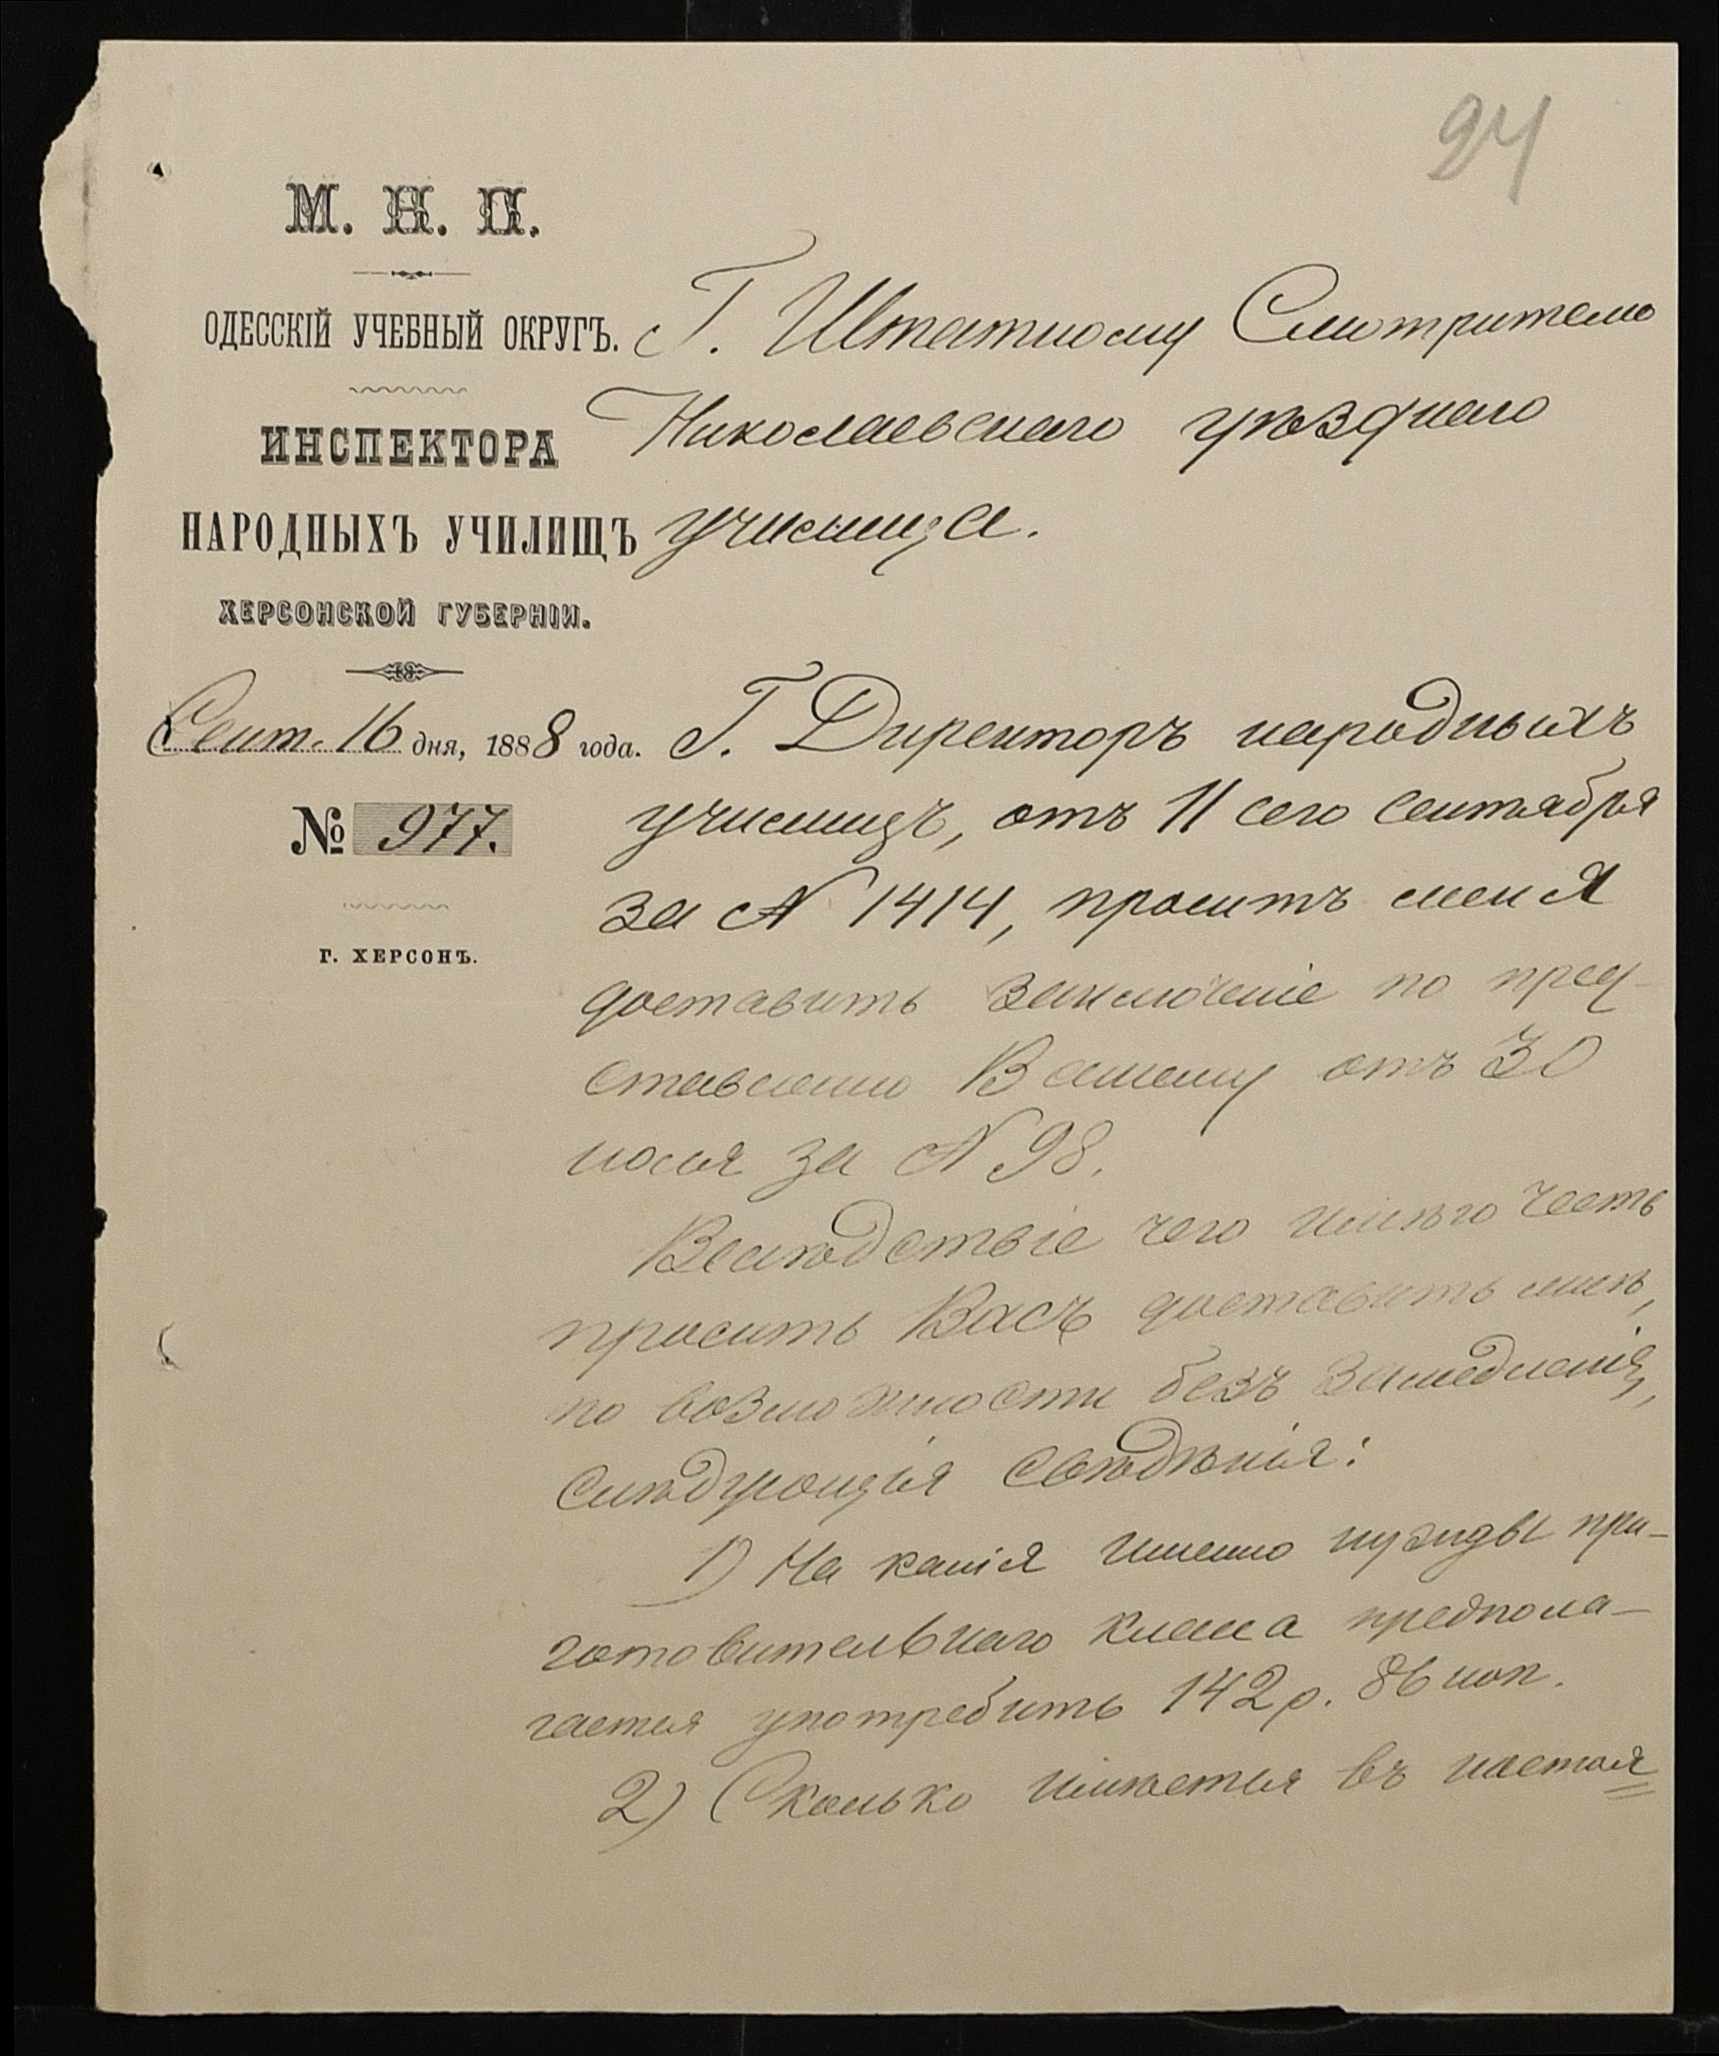 24
М. Н. П.
ОДЕССКІЙ УЧЕБНЫЙ ОКРУГЪ.
ИНСПЕКТОРА
НАРОДНЫХЪ УЧИЛИЩЪ
ХЕРСОНСКОЙ ГУБЕРНІИ.
Сент. 16 дня, 1888 года.
№ 977.
Г. ХЕРСОНЪ.
Г. Штатному Смотрителю
Николаевскаго уѣзднаго
училища.
Г. Директоръ народныхъ
училищъ, отъ 11 сего сентября
за № 1414, проситъ меня
доставить заключеніе по пред-
ставленію Вашему отъ 30
іюля за № 98.
Вслѣдствіе чего имѣю честь
просить Васъ доставить мнѣ,
по возможности безъ замедленія,
слѣдующія свѣдѣнія:
1) На какія именно нужды при-
готовительнаго класса предпола-
гается употребить 142 р. 86 коп.
2) Сколько имѣется въ настоя=